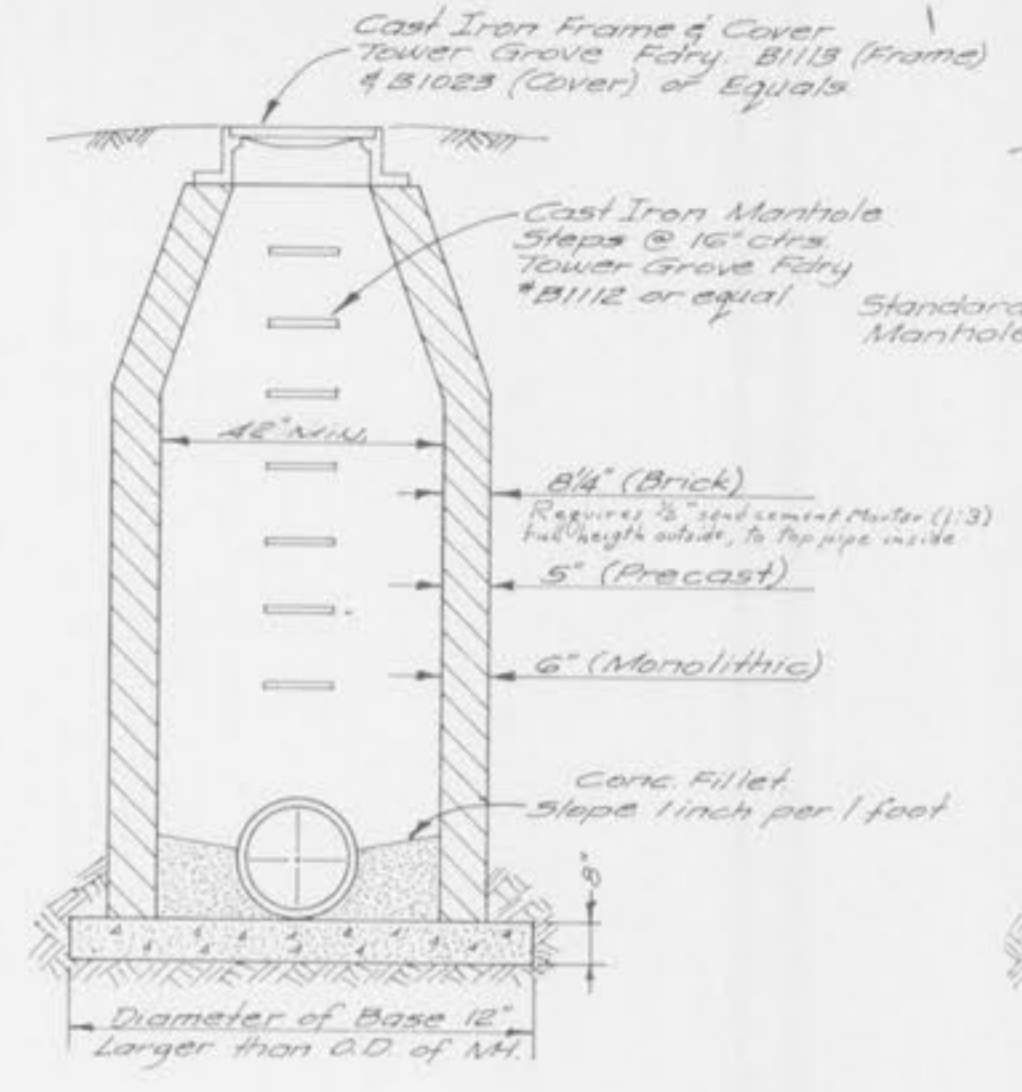 Cast Iron Frame & Cover
Tower Grove Fdry. B1113 (Frame)
& B1023 (Cover) or Equals
Cast Iron Manhole
Steps @ 16" ctrs.
Tower Grove Fdry
#B1112 or equal
Standard
Manhole
42" MIN.
8 1/4" (Brick)
Requires 1/2" sand cement Mortar (1:3)
full heigth outside, to top pipe inside
5" (Precast)
6" (Monolithic)
Conc. Fillet
Slope 1 inch per 1 foot
8"
Diameter of Base 12"
Larger than O.D. of MH.